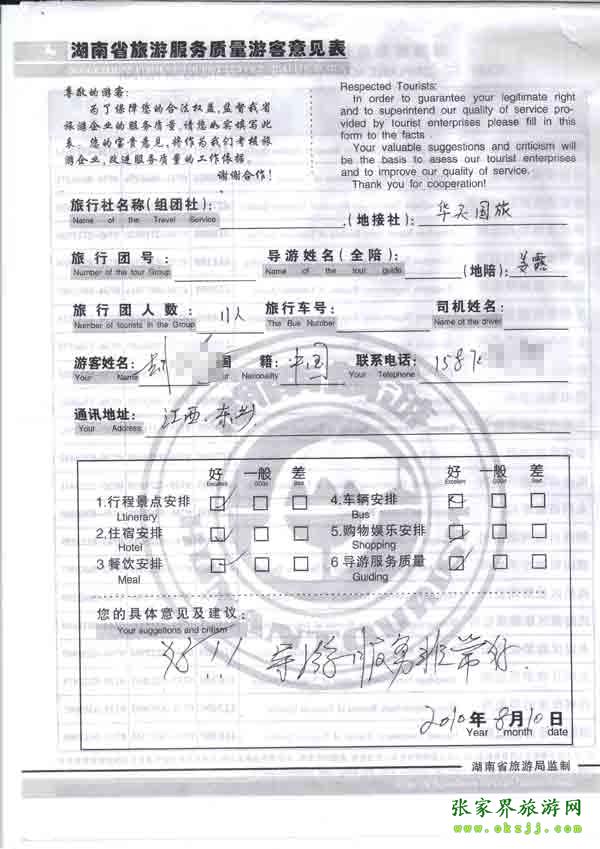 湖南省旅游服务质量游客意见表
尊敬的游客:
为了保障您的合法权益,监督我省
旅游企业的服务质量,请您如实填写此
表。您的宝贵意见,将作为我们考核旅
游企业,改进服务质量的工作依据。
谢谢合作!
Respected Tourists:
In order to guarantee your legitimate right
and to superintend our quality of service pro-
vided by tourist enterprises please fill in this
form to the facts .
Your valuable suggestions and criticism will
be the basis to asess our tourist enterprises
and to improve our quality of service.
Thank you for cooperation!
旅行社名称(组团社): (地接社): 华天国旅
Name of the Travel Service
旅行团号: 导游姓名(全陪) (地陪): 姜露
Number of the tour Group Name of the tour guide
旅行团人数: 11人 旅行车号: 司机姓名:
Number of tourists in the Group The Bus Number Name of the driver
游客姓名: 国籍: 中国 联系电话: 1587
Your Name Nationality Your Telephone
通讯地址: 江西.东乡
Your Address
好 一般 差 好 一般 差
Excellent Good Bad Excellent Good Bad
1.行程景点安排 4.车辆安排
Ltinerary Bus
2.住宿安排 5.购物娱乐安排
Hotel Shopping
3 餐饮安排 6 导游服务质量
Meal Guiding
您的具体意见及建议:
Your suggetions and critism
好!! 导游服务非常好.
2010年8月10日
Year month date
湖南省旅游局监制
张家界旅游网
www.okzjj.com